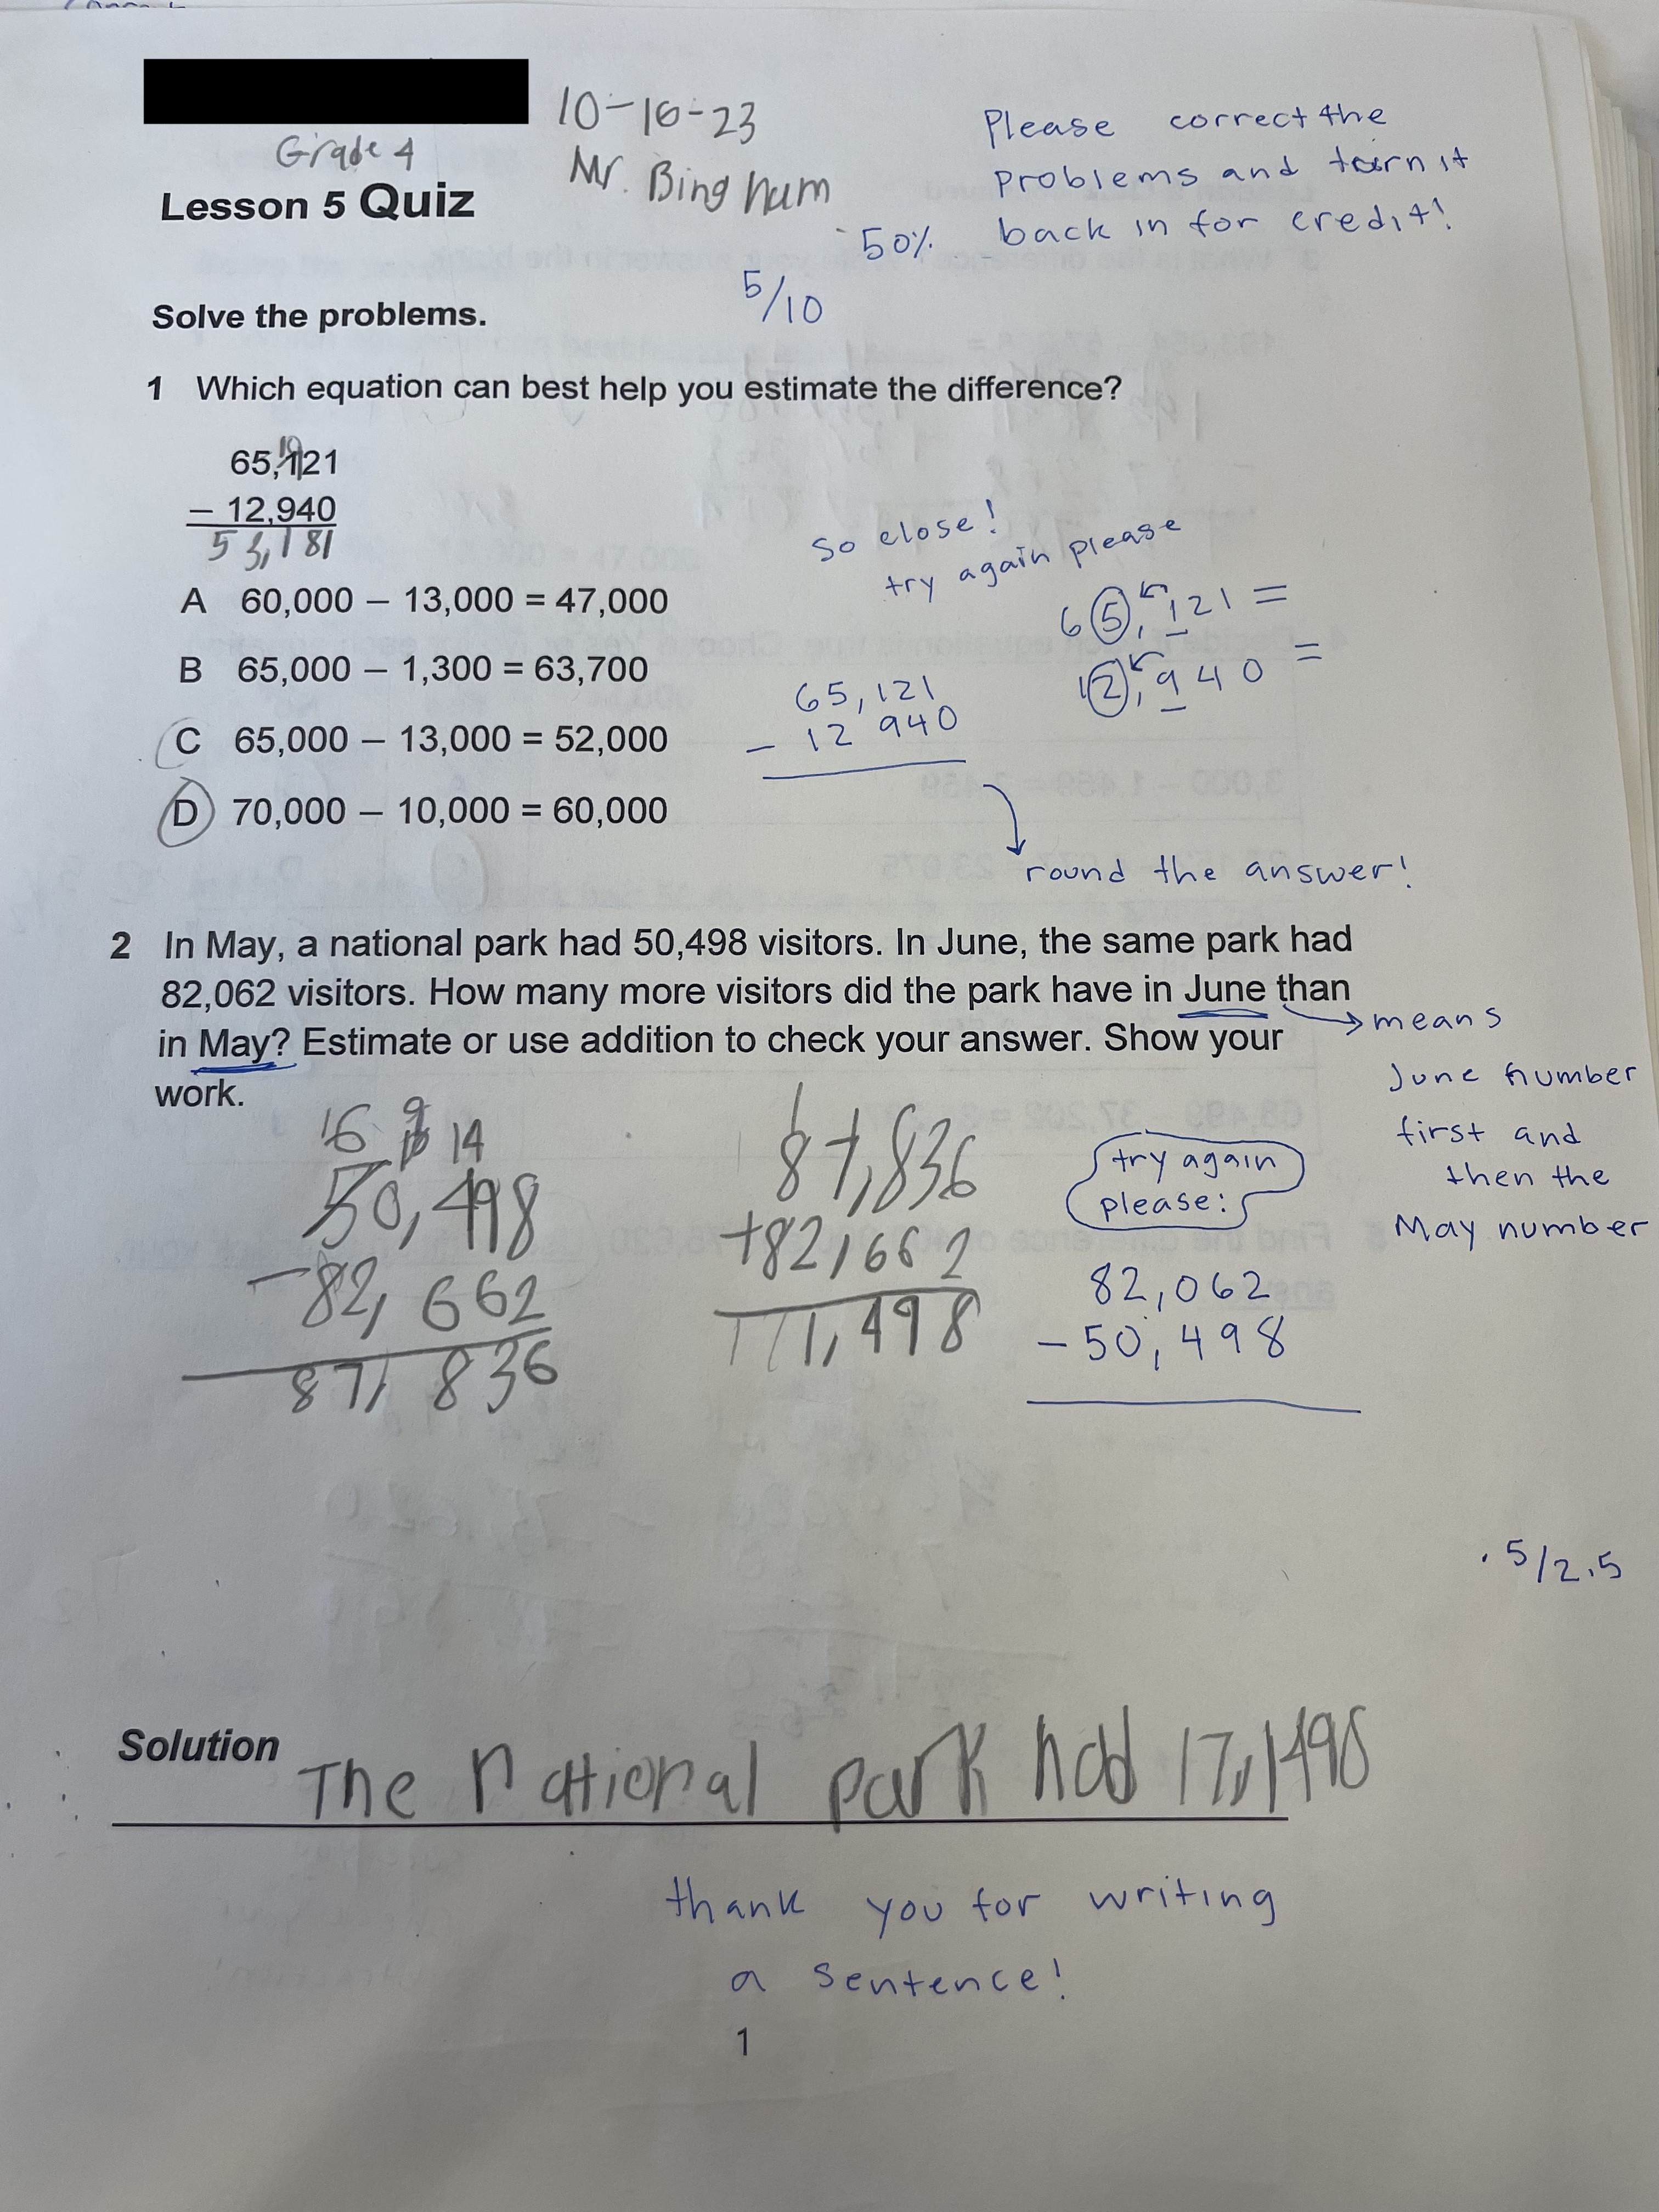 Grade 4
10-16-23
Mr. Bingham
Please correct the
problems and turn it
back in for credit!
Lesson 5 Quiz
50%
5/10
Solve the problems.
1 Which equation can best help you estimate the difference?
10
65,121
− 12,940
53,181
A 60,000 − 13,000 = 47,000
B 65,000 − 1,300 = 63,700
C 65,000 − 13,000 = 52,000
D 70,000 − 10,000 = 60,000
So close!
try again please
65,121 =
12,940 =
65,121
− 12 940
round the answer!
2 In May, a national park had 50,498 visitors. In June, the same park had
82,062 visitors. How many more visitors did the park have in June than
in May? Estimate or use addition to check your answer. Show your
work.
means
June number
first and
then the
May number
16 9 10 14
50,498
− 82,662
87,836
1
87,836
+82,662
171,498
try again
please:
82,062
− 50,498
.5/2.5
Solution The national park had 17,1498
thank you for writing
a sentence!
1